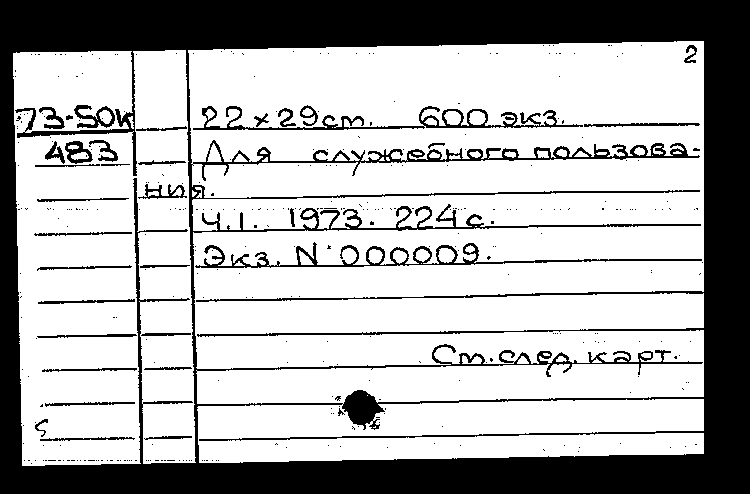 2
73-50к 22 × 29 см. 600 экз.
483 Для служебного пользова-
ния.
Ч.1. 1973. 224 с.
Экз. N 000009.
См. след. карт.